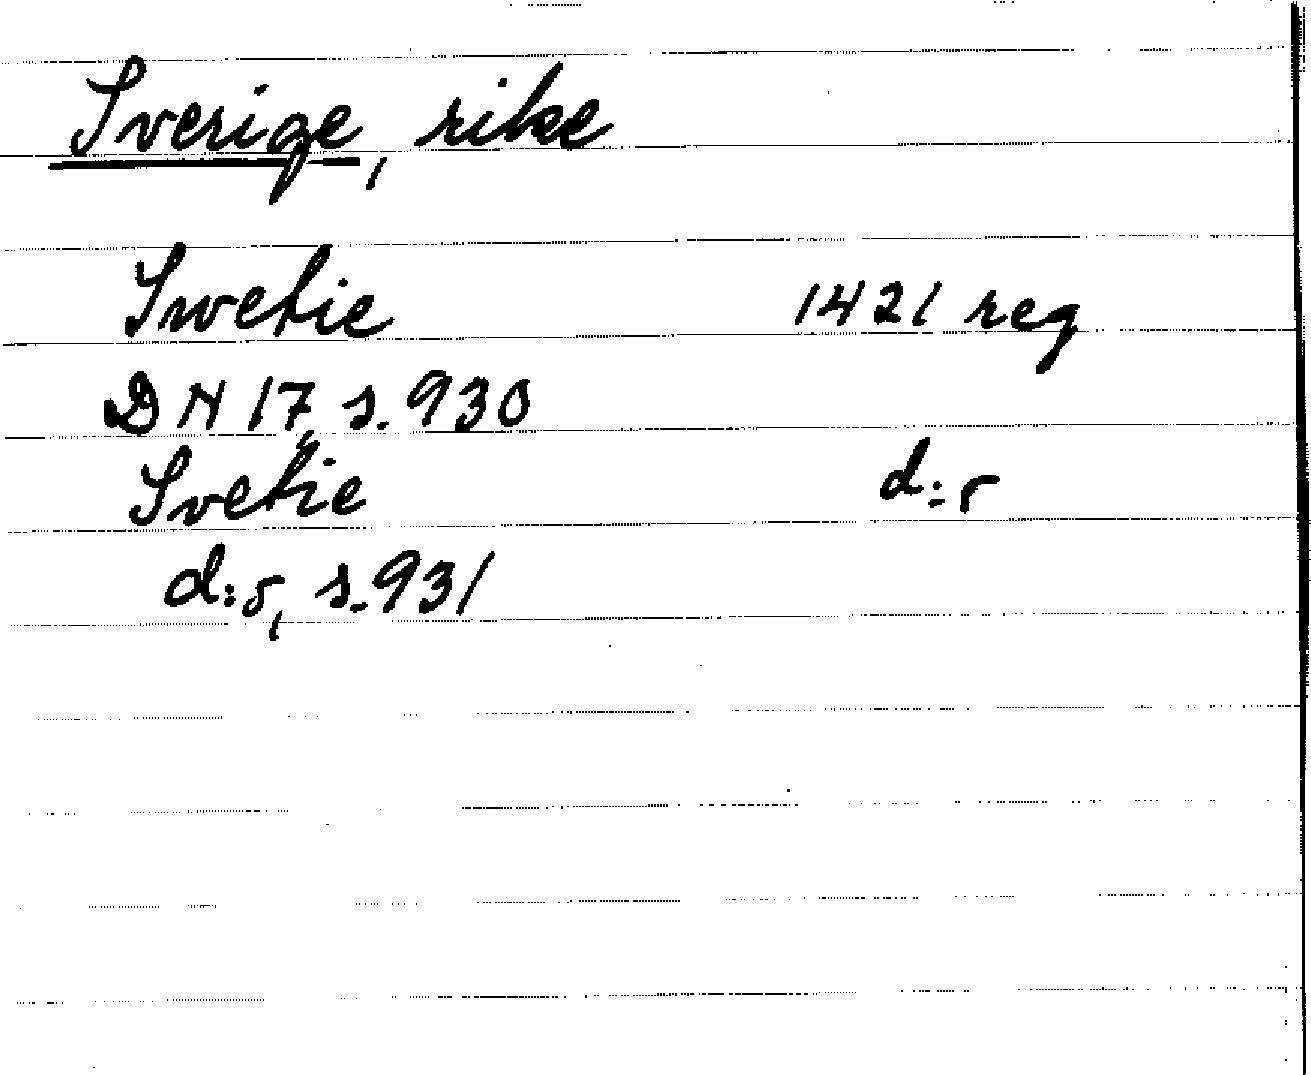 Sverige, rike
Swetie 1421 reg
DN 17, s. 930
Svetie d:r
d:r, s. 931